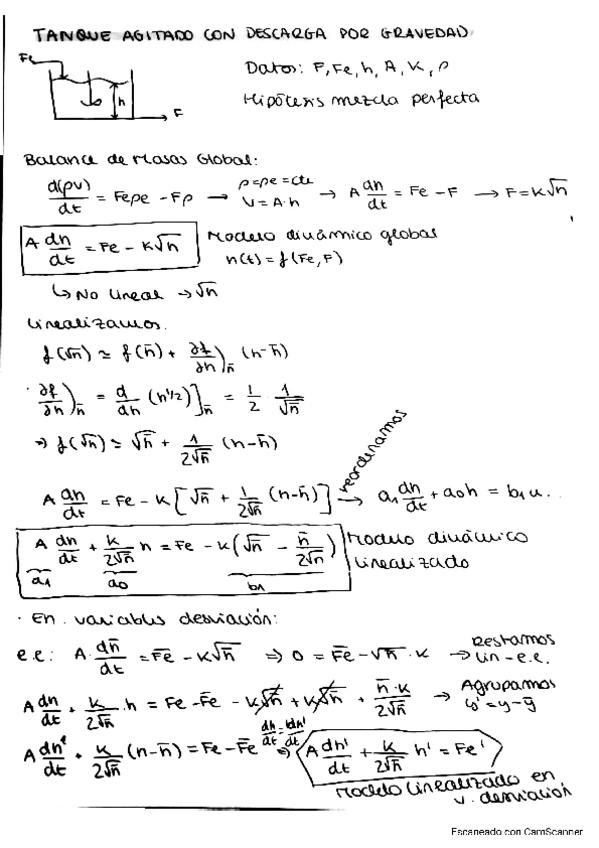 TANQUE AGITADO CON DESCARGA POR GRAVEDAD
Fe
h
F
Datos: F, Fe, h, A, K, ρ
Hipótesis mezcla perfecta
Balance de Masas Global:
d(ρV)/dt = Feρe - Fρ → ρ=ρe=cte V=A·h → A dh/dt = Fe - F → F=K√h
A dh/dt = Fe - K√h Modelo dinámico global
h(t) = f(Fe, F)
↳ No lineal → √h
Linealizamos.
f(√h) ≃ f(h̄) + ∂f/∂h)h̄ (h-h̄)
· ∂f/∂h)h̄ = d/dh (h^1/2)]h̄ = 1/2 1/√h̄
⇒ f(√h) ≃ √h̄ + 1/2√h̄ (h-h̄)
A dh/dt = Fe - K[√h̄ + 1/2√h̄ (h-h̄)] → reordenamos a1 dh/dt + a0h = b1u..
A dh/dt + K/2√h̄ h = Fe - K(√h̄ - h̄/2√h̄) Modelo dinámico
a1 a0 b1 linealizado
· En variables desviación:
e.e: A· dh̄/dt = F̄e - K√h̄ ⇒ 0 = F̄e - √h̄·K → Restamos lin-e.e.
A dh/dt + K/2√h̄ ·h = Fe - F̄e - K√h̄ + K√h̄ + h̄·K/2√h̄ → Agrupamos y'=y-ȳ
A dh'/dt + K/2√h̄ (h-h̄) = Fe - F̄e dh/dt = dh'/dt ⇒ A dh'/dt + K/2√h̄ h' = Fe'
Modelo linealizado en
v. desviación
Escaneado con CamScanner